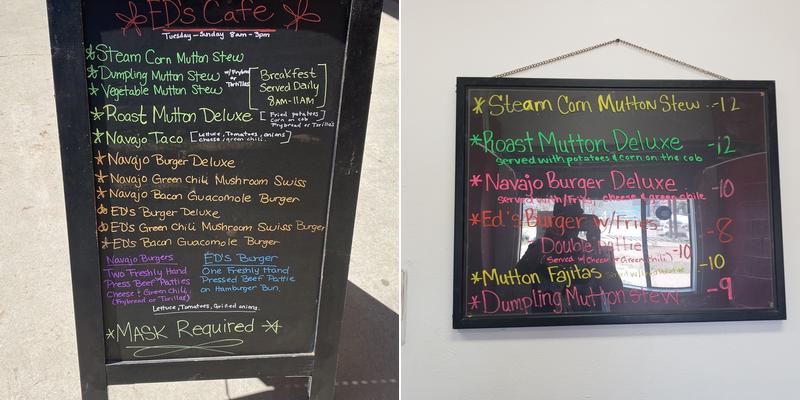 ED's Cafe
Tuesday - Sunday 8am - 3pm
*Steam Corn Mutton Stew
*Dumpling Mutton Stew w/Frybread or Tortillas
*Vegetable Mutton Stew
Breakfest
Served Daily
8AM-11AM
*Roast Mutton Deluxe [Fried potatoes, corn on cob
Frybread or Tortilla's]
*Navajo Taco [Lettuce, Tomatoes, onions
cheese/green chili.]
*Navajo Burger Deluxe
*Navajo Green Chili Mushroom Swiss
*Navajo Bacon Guacomole Burger
*ED's Burger Deluxe
*ED's Green Chili Mushroom Swiss Burger
*ED's Bacon Guacomole Burger
Navajo Burgers
Two Freshly Hand
Press Beef Patties
Cheese & Green Chili.
(Frybread or Tortillas)
ED's Burger
One Freshly Hand
Pressed Beef Pattie
on Hamburger Bun.
Lettuce, Tomatoes, Grilled onions.
*MASK Required*
*Steam Corn Mutton Stew -12
*Roast Mutton Deluxe -12
served with potatoes & corn on the cob
*Navajo Burger Deluxe -10
served with/Fries, cheese & green chile
*Ed's Burger w/Fries -8
Double pattie -10
(Served w/Cheese & Green chili)
*Mutton Fajitas -10
*Dumpling Mutton stew -9